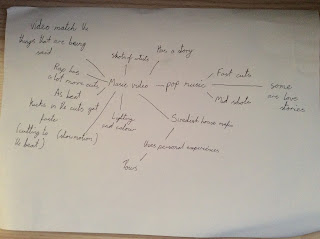 Video match the
things that are being
said
shots of artists
Has a story
Pop has
a lot more cuts
Music video
pop music
Fast cuts
Mid shots
some
are love
stories
As beat
in the cuts get
(cutting to
the beat)
(slow motion)
Lighting
and colour
Swedish house mafia
Uses personal experiences
Tours